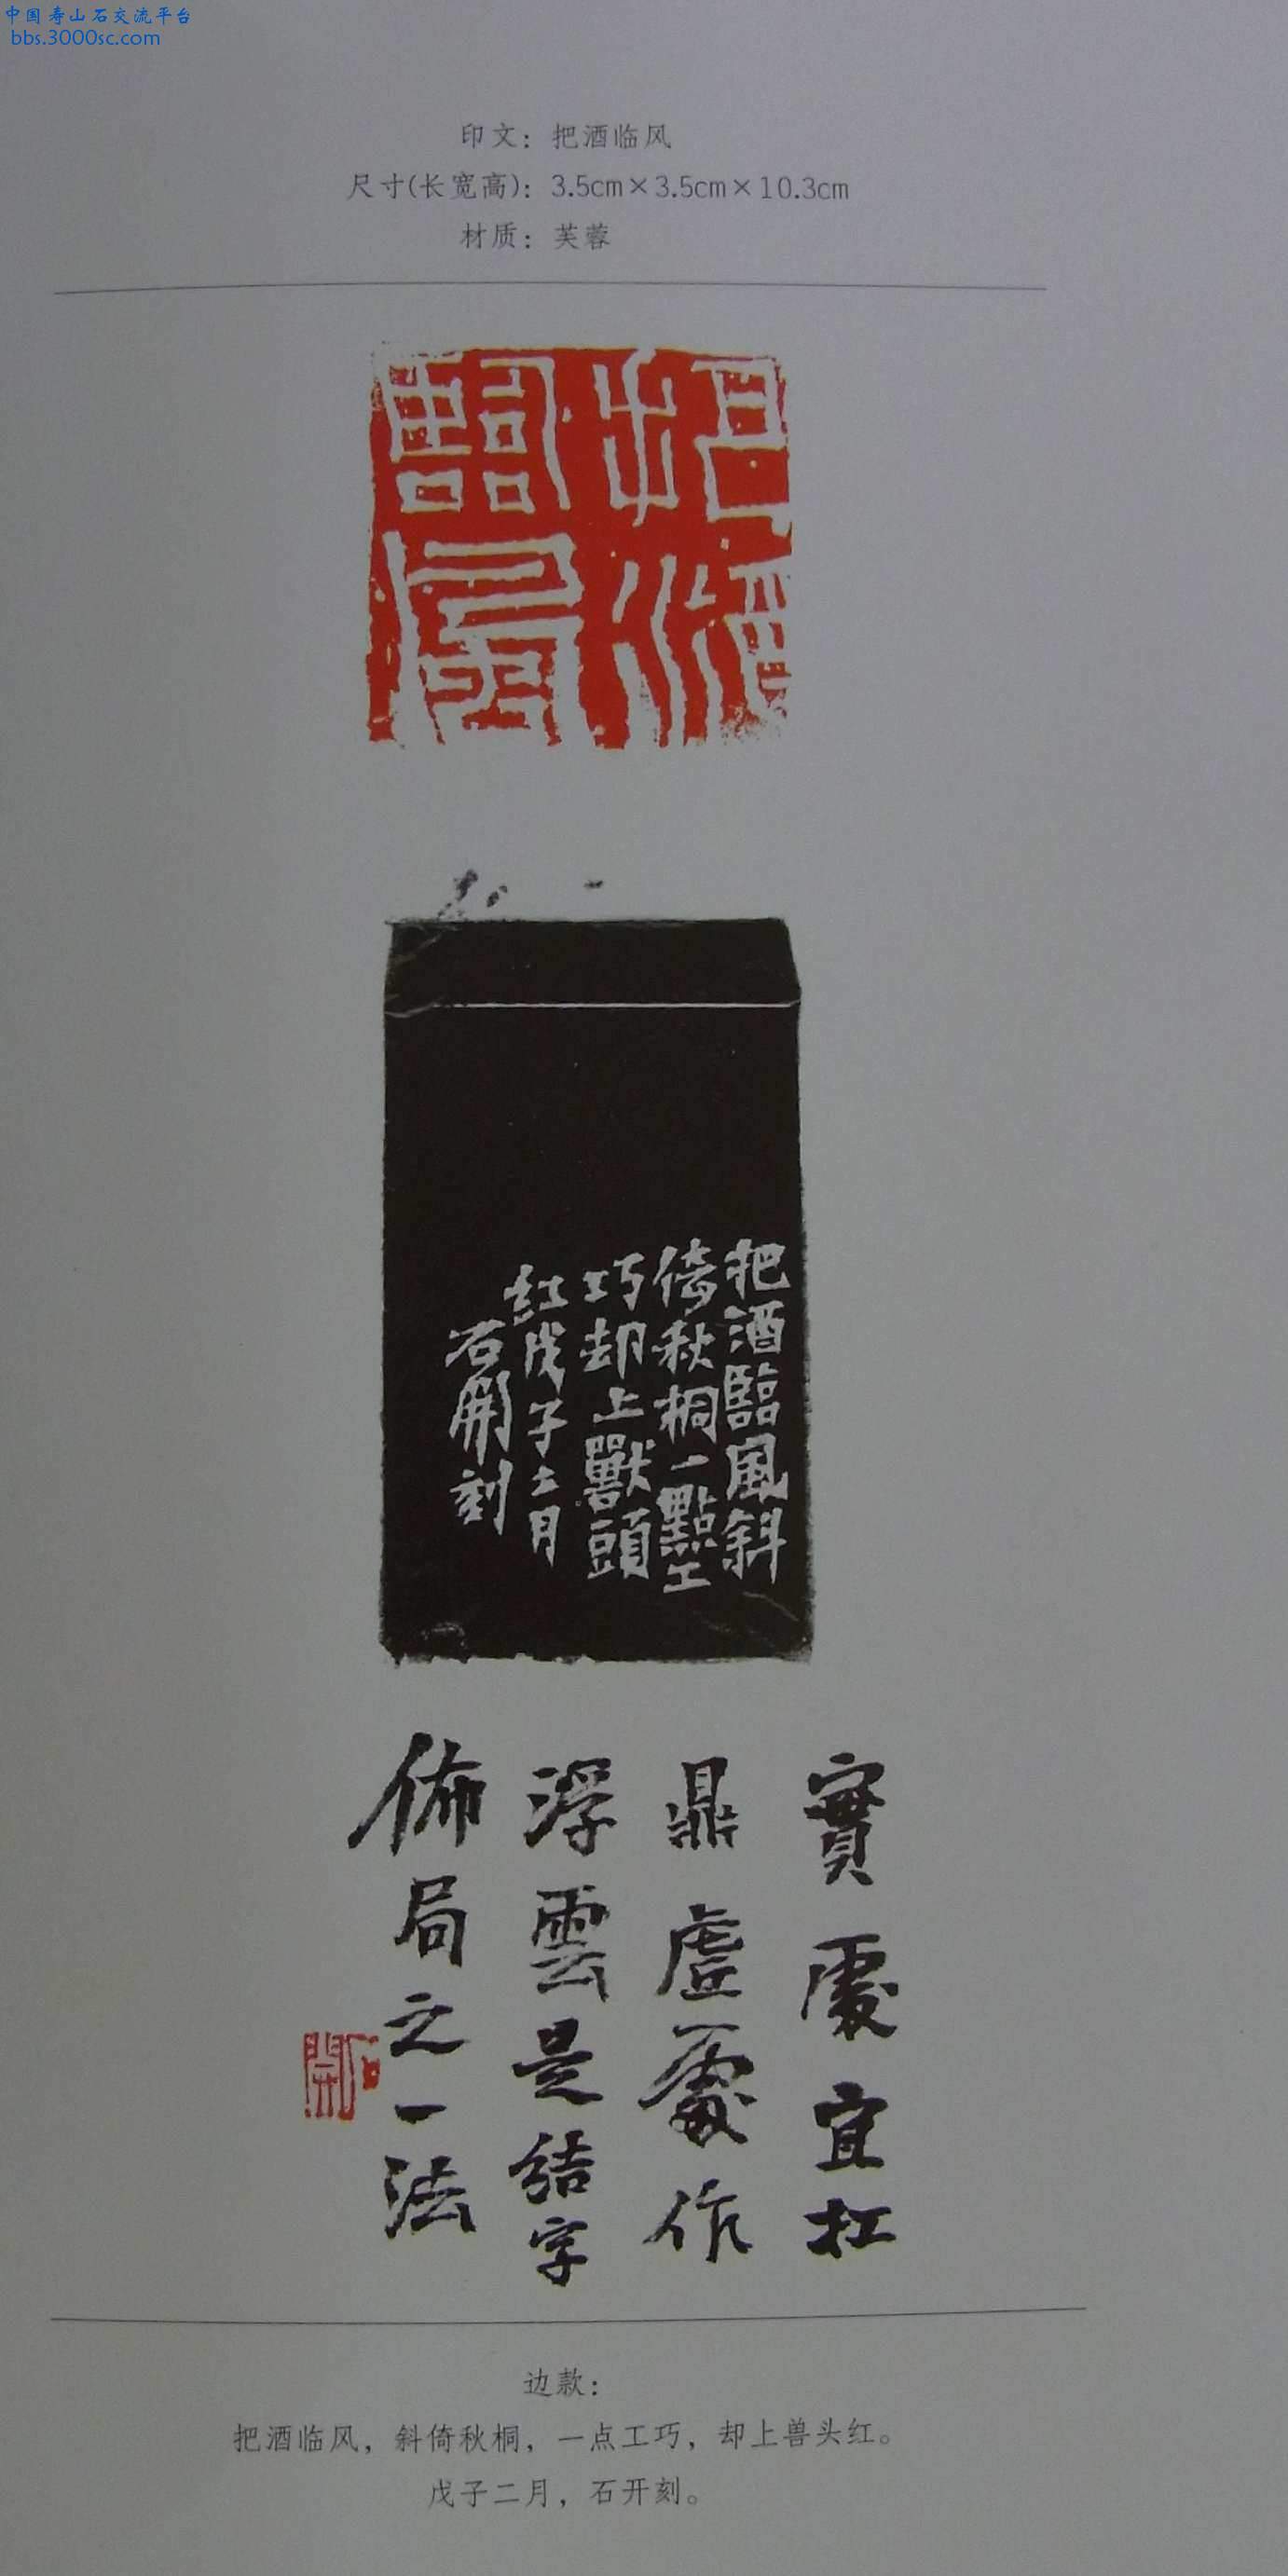 中国寿山石交流平台
bbs.3000sc.com
印文：把酒临风
尺寸(长宽高)：3.5cm×3.5cm×10.3cm
材质：芙蓉
把酒臨風
把酒臨風斜
倚秋桐一點工
巧却上獸頭
红戊子二月
石開刻
實處宜扛
鼎虛處作
浮雲是結字
佈局之一法
石開
边款：
把酒临风，斜倚秋桐，一点工巧，却上兽头红。
戊子二月，石开刻。